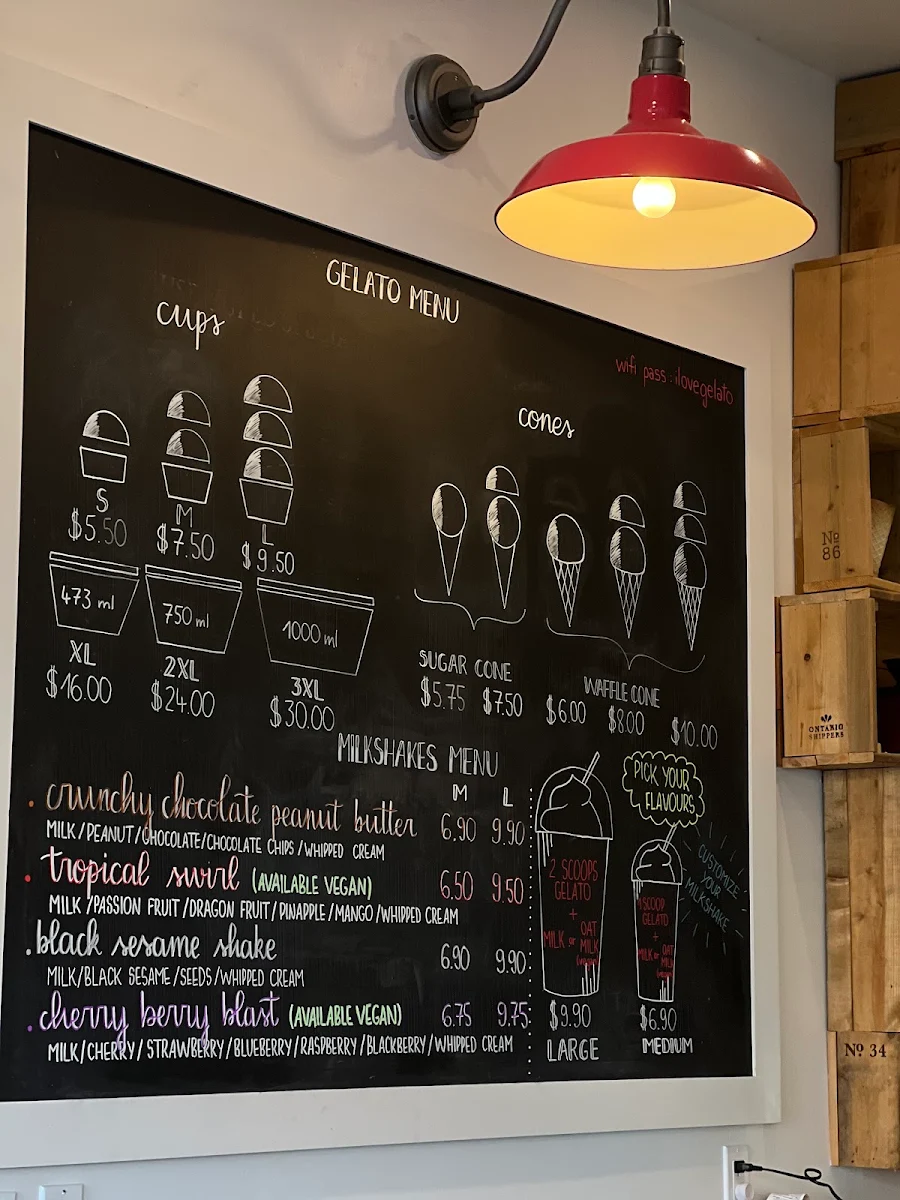 GELATO MENU
wifi pass : ilovegelato
cups
S
$5.50
M
$7.50
L
$9.50
473 ml
XL
$16.00
750 ml
2XL
$24.00
1000 ml
3XL
$30.00
cones
SUGAR CONE
$5.75 $7.50
WAFFLE CONE
$6.00 $8.00 $10.00
MILKSHAKES MENU
M L
. crunchy chocolate peanut butter 6.90 9.90
MILK/PEANUT/CHOCOLATE/CHOCOLATE CHIPS/WHIPPED CREAM
. tropical swirl (AVAILABLE VEGAN) 6.50 9.50
MILK/PASSION FRUIT/DRAGON FRUIT/PINAPPLE/MANGO/WHIPPED CREAM
. black sesame shake 6.90 9.90
MILK/BLACK SESAME/SEEDS/WHIPPED CREAM
. cherry berry blast (AVAILABLE VEGAN) 6.75 9.75
MILK/CHERRY/STRAWBERRY/BLUEBERRY/RASPBERRY/BLACKBERRY/WHIPPED CREAM
PICK YOUR
FLAVOURS
CUSTOMIZE
YOUR
MILKSHAKE
2 SCOOPS
GELATO
+
MILK or OAT
MILK
(vegan)
$9.90
LARGE
1 SCOOP
GELATO
+
MILK or OAT
MILK
(vegan)
$6.90
MEDIUM
Nº
86
ONTARIO
SHIPPERS
Nº 34